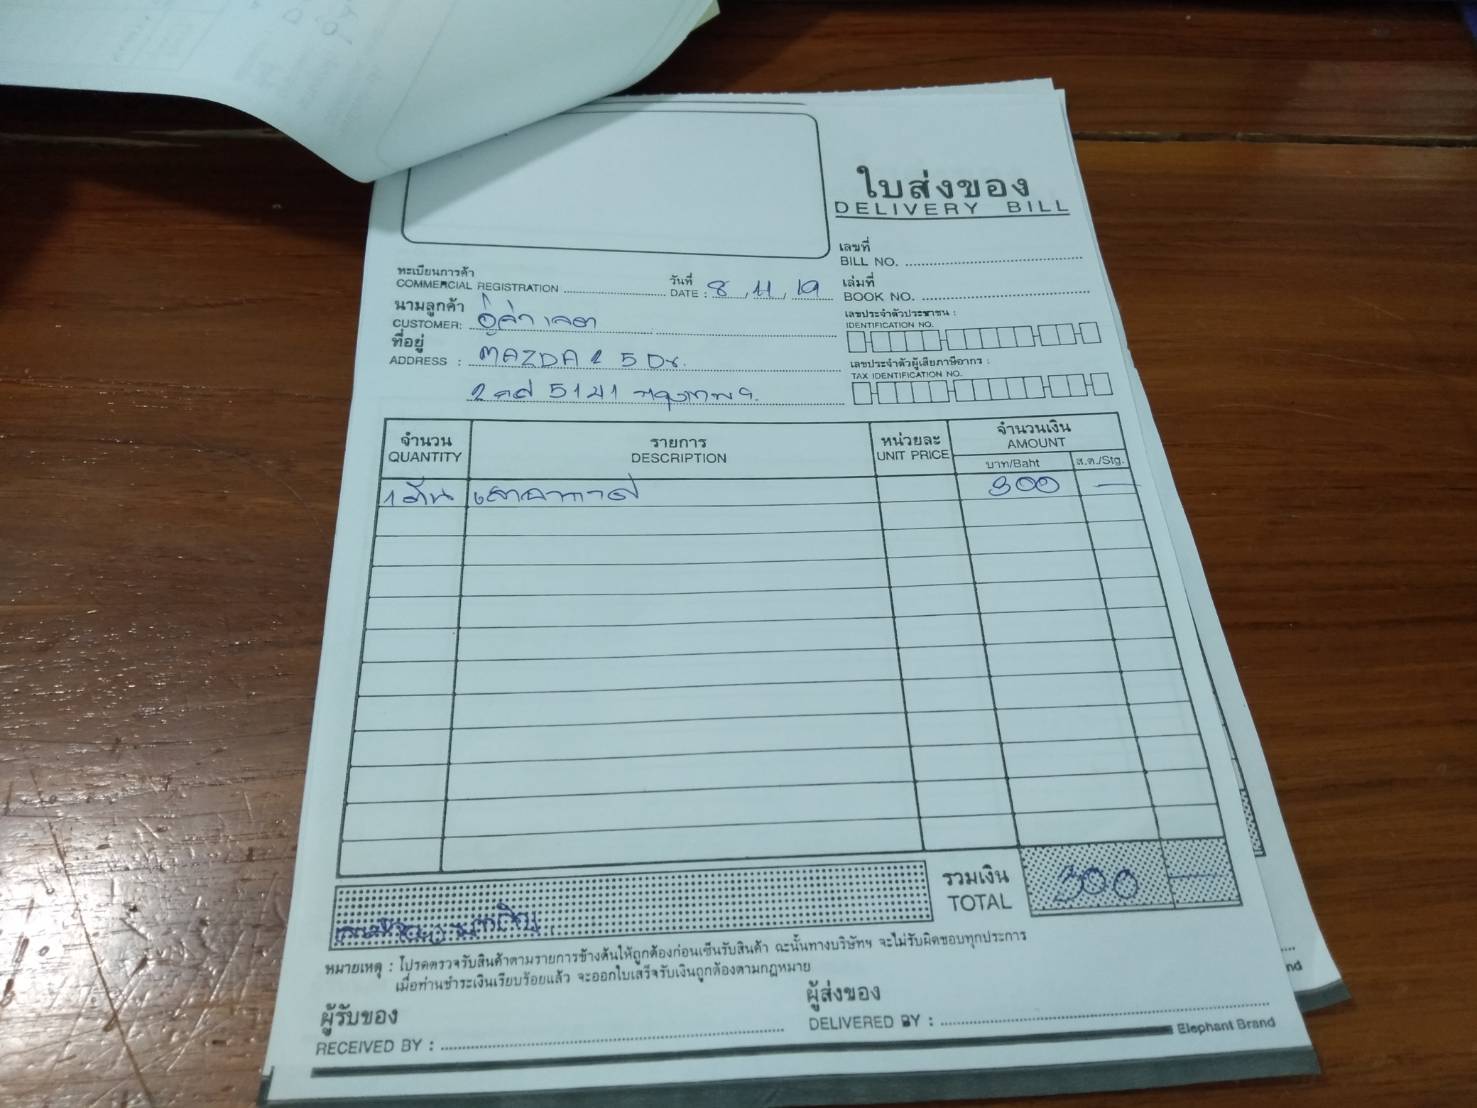 ใบส่งของ
DELIVERY BILL
เลขที่
BILL NO.
ทะเบียนการค้า
COMMERCIAL REGISTRATION
วันที่
DATE : 8, 11, 19
เล่มที่
BOOK NO.
นามลูกค้า
CUSTOMER:
เลขประจำตัวประชาชน :
IDENTIFICATION NO.
ที่อยู่
ADDRESS : MAZDA 2 5 Dr.
เลขประจำตัวผู้เสียภาษีอากร :
TAX IDENTIFICATION NO.
กรุงเทพฯ
จำนวน
QUANTITY
รายการ
DESCRIPTION
หน่วยละ
UNIT PRICE
จำนวนเงิน
AMOUNT
บาท/Baht
ส.ต./Stg.
1 คัน 300 —
รวมเงิน
TOTAL
300 —
หมายเหตุ : โปรดตรวจรับสินค้าตามรายการข้างต้นให้ถูกต้องก่อนเซ็นรับสินค้า ฉะนั้นทางบริษัทฯ จะไม่รับผิดชอบทุกประการ
เมื่อท่านชำระเงินเรียบร้อยแล้ว จะออกใบเสร็จรับเงินถูกต้องตามกฎหมาย
ผู้รับของ
RECEIVED BY :
ผู้ส่งของ
DELIVERED BY :
Elephant Brand
nd